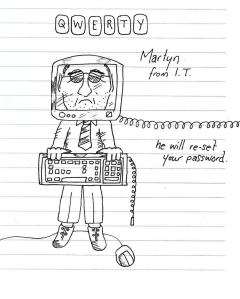 QWERTY
Martyn
from I.T.
he will re-set
your password.